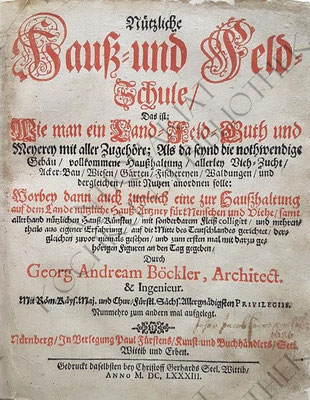 Nützliche
Hauß-und Feld-
Schule
Das ist:
Wie man ein Land-Feld-Guth und
Meyerey mit aller Zugehöre; Als da seynd die nothwendige
Gebäu/ vollkommene Haußhaltung/ allerley Vieh-Zucht/
Acker-Bau/ Wiesen/ Gärten/ Fischereyen/ Waldungen/ und
dergleichen/ mit Nutzen anordnen solle:
Worbey dann auch zugleich eine zur Haußhaltung
auf dem Lande nützliche Hauß-Artzney für Menschen und Viehe/ samt
allerhand nützlichen Hauß-Künsten/ mit sonderbarem Fleiß colligirt/ und mehren-
theils aus eigener Erfahrung/ auf die Mitte des Teutschlandes gerichtet/ der-
gleichen zuvor niemals gesehen/ und zum ersten mal mit darzu ge-
hörigen Figuren an den Tag gegeben/
Durch
Georg Andream Böckler, Architect.
& Ingenieur.
Mit Röm. Käys. Maj. und Chur-Fürstl. Sächs. Allergnädigsten PRIVILEGIIS.
Nunmehro zum andern mal aufgelegt.
1686
Nürnberg/ In Verlegung Paul Fürstens/ Kunst-und Buchhändlers/ Seel.
Wittib und Erben.
Gedruckt daselbsten bey Christoff Gerhards Seel. Wittib/
ANNO M. DC. LXXXIII.